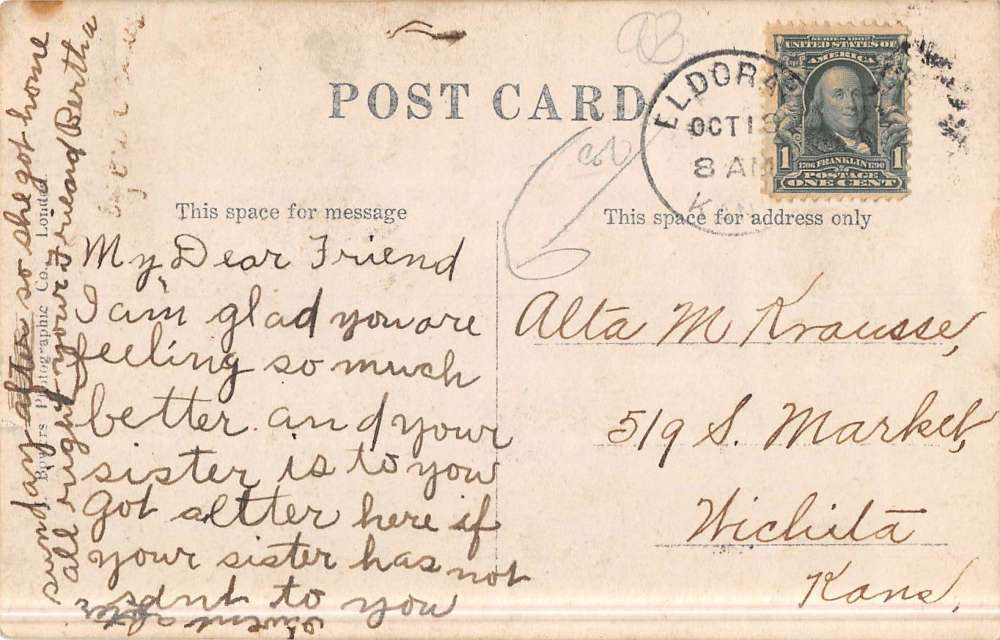 POST CARD
ELDORADO
OCT 13
8 AM
KAN
SERIES 1902
UNITED STATES OF
AMERICA
1 1706 FRANKLIN 1790 1
POSTAGE
ONE CENT
This space for message
This space for address only
My Dear Friend
I am glad you are
feeling so much
better and your
sister is to you
got a letter here if
your sister has not
sent to you
went after
sunday after so she got home
all right your Frieand Bertha
Photographic Co. London.
Alta M Krausse,
519 S. Market,
Wichita
Kans.